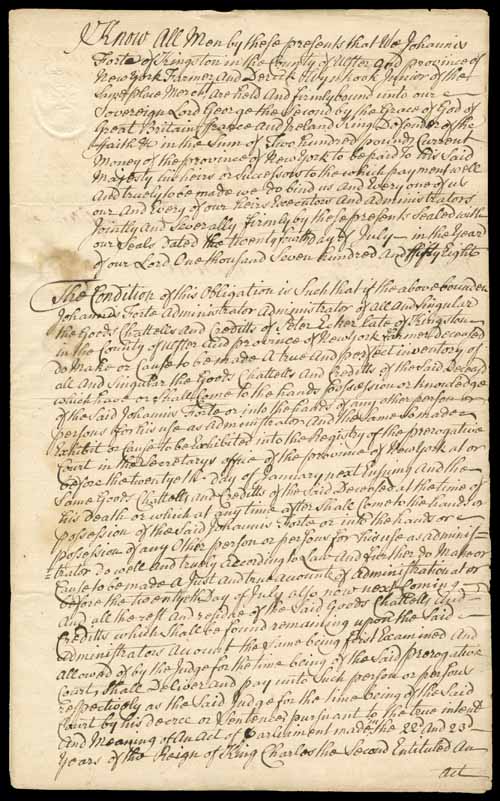 Know All Men by these presents that We Johannis
Forte of Kingston in the County of Ulster and province of
New York Farmer And Derick Wynkook Junior of the
Same place Merch.t Are held And firmly bound unto our
Sovereign Lord George the Second by the Grace of God of
Great Britain ffrance And Ireland King Defender of the
ffaith & in the Sum of Two hundred pounds Current
Money of the province of New York to be paid to his Said
Majesty his heirs or Successors to the which payment well
And truely to be made we do bind us And Every one of us
our And Every of our heirs Executors And Administrators
Jointly And Severally firmly by these presents Sealed with
our Seals Dated the twenty fourth day of July in the Year
of our Lord One thousand Seven hundred And ffifty Eight
The Condition of this Obligation is Such that if the above bounden
Johannis Forte Administrator Administrator of all And Singular
the Goods Chattells and Creditts of Peter late of Kingston
in the County of Ulster And province of New york Farmer Deceased
do Make or Cause to be made A true And perfect inventory of
all And Singular the Goods Chattells And Creditts of the Said Deceas'd
which have or shall Come to the hands possession or knowledge
of the Said Johannis Forte or into the hands of any other person or
persons for his use as Administrator And the Same So made
Exhibit or Cause to be Exhibited into the Registry of the prerogative
Court in the Secretarys office of the province of New york at or
before the twentyeth Day of January next Ensuing And the
Same Goods Chattells and Creditts of the Said Deceased at the time of
his Death or which at any time after Shall Come to the hands or
possession of the Said Johannis Forte or into the hands or
possession of any Other person or persons for his use as Adminis=
=trator do well and truely according to Law And further do Make or
Cause to be made A Just And true Account of administration at or
before the twentyeth Day of July also now next Coming
And all the rest And residue of the Said Goods Chattells And
Creditts which shall be found remaining upon the Said
Administrators Account the same being first Examined And
allowed of by the Judge for the time being of the Said prerogative
Court, Shall Deliver and pay unto Such person or persons
respectively as the Said Judge for the time being of the Said
Court by his decree or Sentence pursuant to the true intent
And Meaning of An Act of Parliament made in the 22d And 23d
Years of the Reign of King Charles the Second Entituled An
act